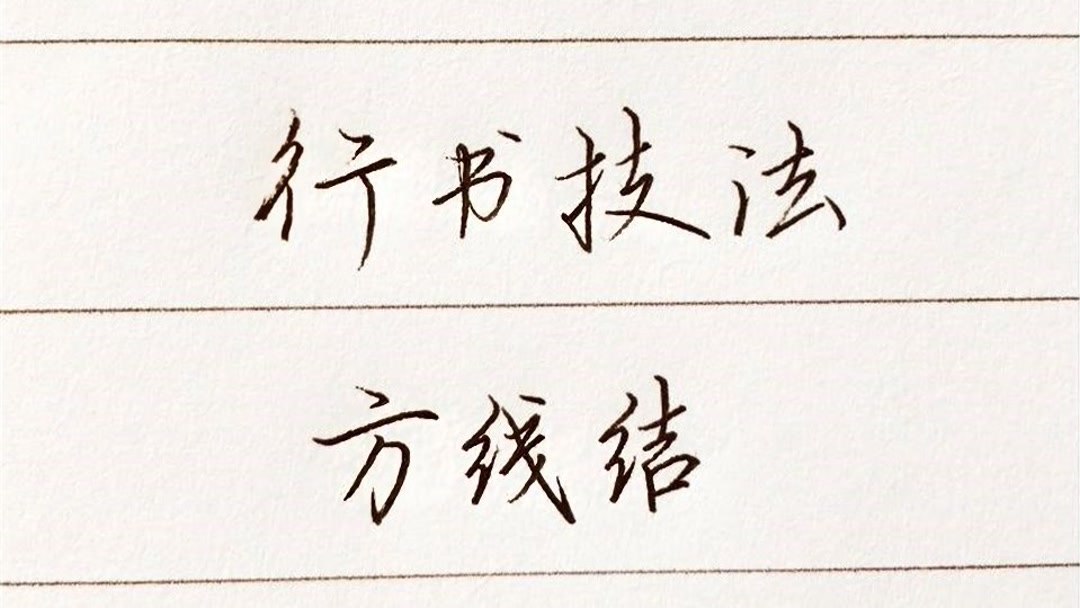 行书技法
方线结